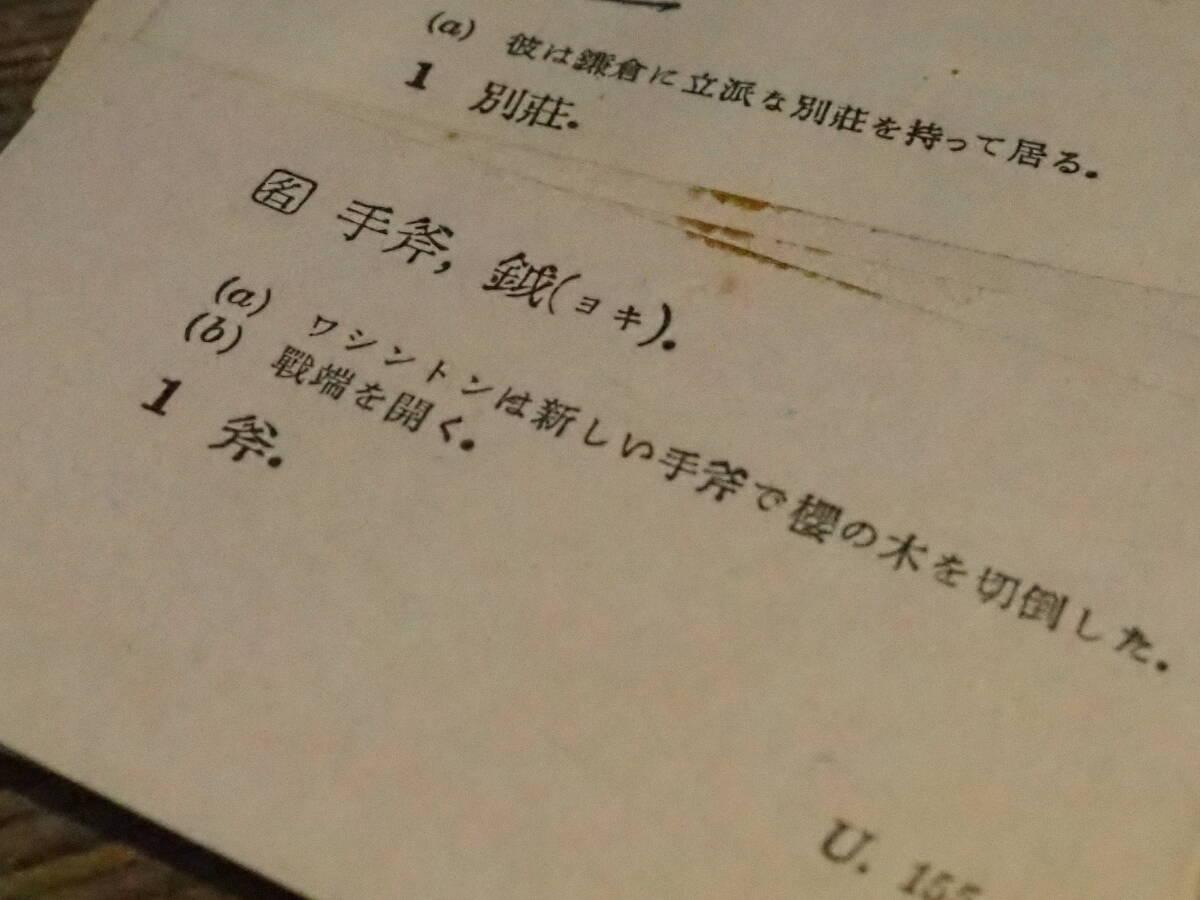 (a) 彼は鎌倉に立派な別莊を持って居る.
1 別莊.
名 手斧, 鉞(ヨキ).
(a) ワシントンは新しい手斧で櫻の木を切倒した.
(b) 戰端を開く.
1 斧.
U. 155